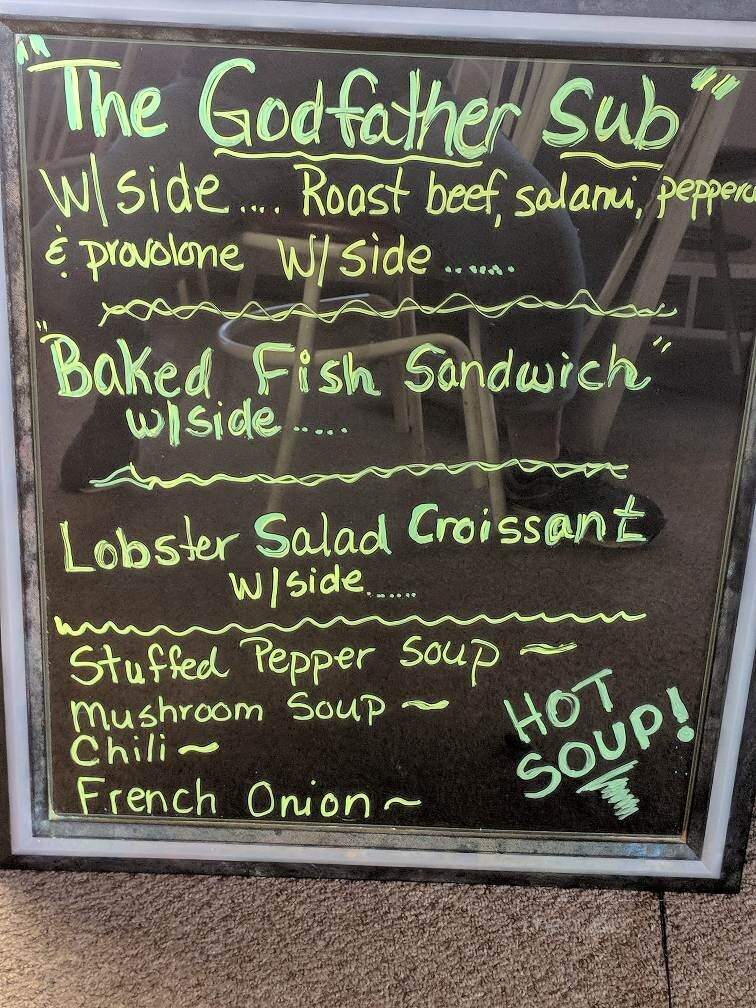 "The Godfather Sub"
W/side.... Roast beef, salami,
& provolone W/side .......
"Baked Fish Sandwich"
w/side.....
Lobster Salad Croissant
w/side......
Stuffed Pepper Soup ~
Mushroom Soup ~
Chili ~
French Onion ~
HOT
SOUP!